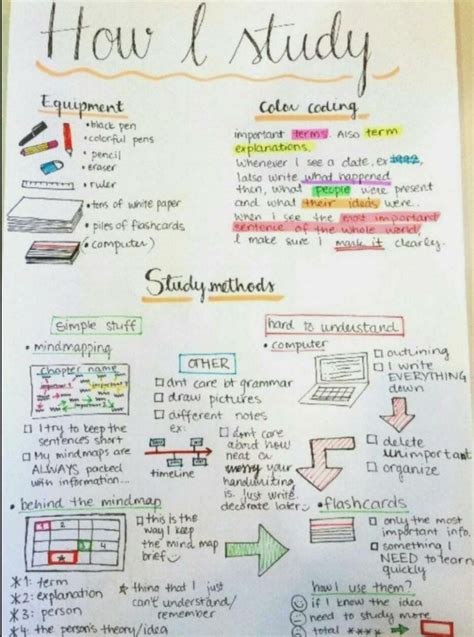 How I study
Equipment
• black pen
• colorful pens
• pencil
• eraser
• ruler
• tons of white paper
• piles of flashcards
(• computer)
Color coding
important terms. Also term
explanations.
Whenever I see a date, ex 1992,
I also write what happened
then, what people were present
and what their ideas were.
When I see the most important
sentence of the whole world
I make sure I mark it clearly.
Study methods
simple stuff
• mindmapping
Chapter name
important 1
important 2
☐ I try to keep the
sentences short
☐ My mindmaps are
ALWAYS packed
with information....
• behind the mindmap
1 2
3 4
*
☐ this is the
way I keep
the mind map
brief
*1: term
*2: explanation
*3: person
*4: the person's theory/idea
* thing that I just
can't understand/
remember
OTHER
☐ dont care bt grammar
☐ draw pictures
☐ different notes
ex:
timeline
☐ dont care
about how
neat or
messy your
handwriting
is. just write.
decorate later
hard to understand
• computer
☐ outlining
☐ I write
EVERYTHING
down
☐ delete
unimportant
☐ organize
• flashcards
☐ only the most
important info.
☐ something I
NEED to learn
quickly
how I use them?
if I know the idea
need to study more
total ****